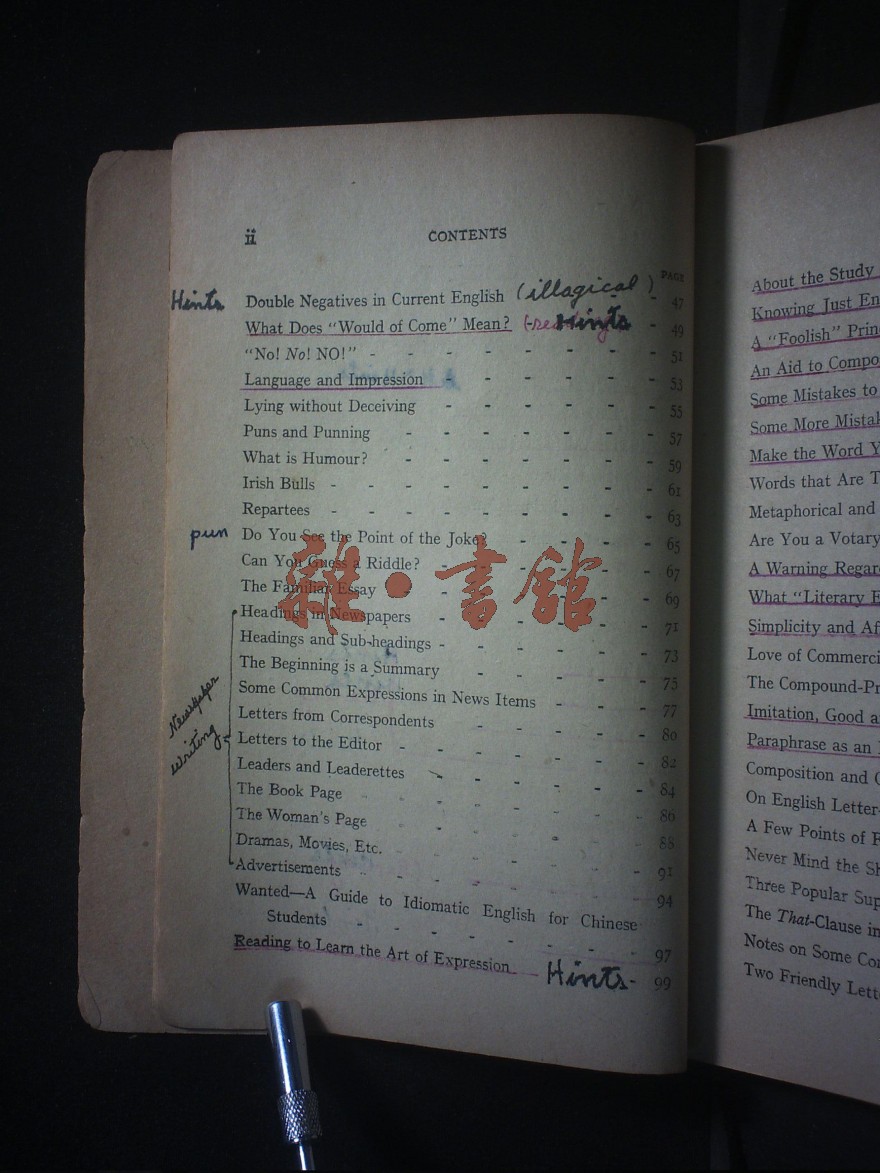 ii CONTENTS
PAGE
Hints Double Negatives in Current English (illagical) - 47
What Does "Would of Come" Mean? Hints - 49
"No! No! NO!" - - - - - - - - 51
Language and Impression - - - - - - 53
Lying without Deceiving - - - - - - 55
Puns and Punning - - - - - - - 57
What is Humour? - - - - - - - 59
Irish Bulls - - - - - - - - - 61
Repartees - - - - - - - - - 63
pun Do You See the Point of the Joke? - - - - - 65
Can You Guess a Riddle? - - - - - - 67
The Familiar Essay - - - - - - - 69
Headings in Newspapers - - - - - - 71
Headings and Sub-headings - - - - - - 73
The Beginning is a Summary - - - - - 75
Some Common Expressions in News Items - - - 77
Letters from Correspondents - - - - - 80
Newspaper Writing
Letters to the Editor - - - - - - - 82
Leaders and Leaderettes - - - - - - 84
The Book Page - - - - - - - - 86
The Woman's Page - - - - - - - 88
Dramas, Movies, Etc. - - - - - - - 91
Advertisements - - - - - - - - 94
Wanted—A Guide to Idiomatic English for Chinese
Students - - - - - - - - 97
Reading to Learn the Art of Expression Hints - 99
雜·書館
About the Study
Knowing Just En
A "Foolish" Prin
An Aid to Compo
Some Mistakes to
Some More Mistak
Make the Word Y
Words that Are T
Metaphorical and
Are You a Votary
A Warning Regar
What "Literary E
Simplicity and Af
Love of Commerci
The Compound-Pr
Imitation, Good a
Paraphrase as an
Composition and
On English Letter-
A Few Points of
Never Mind the Sh
Three Popular Sup
The That-Clause in
Notes on Some Con
Two Friendly Lett